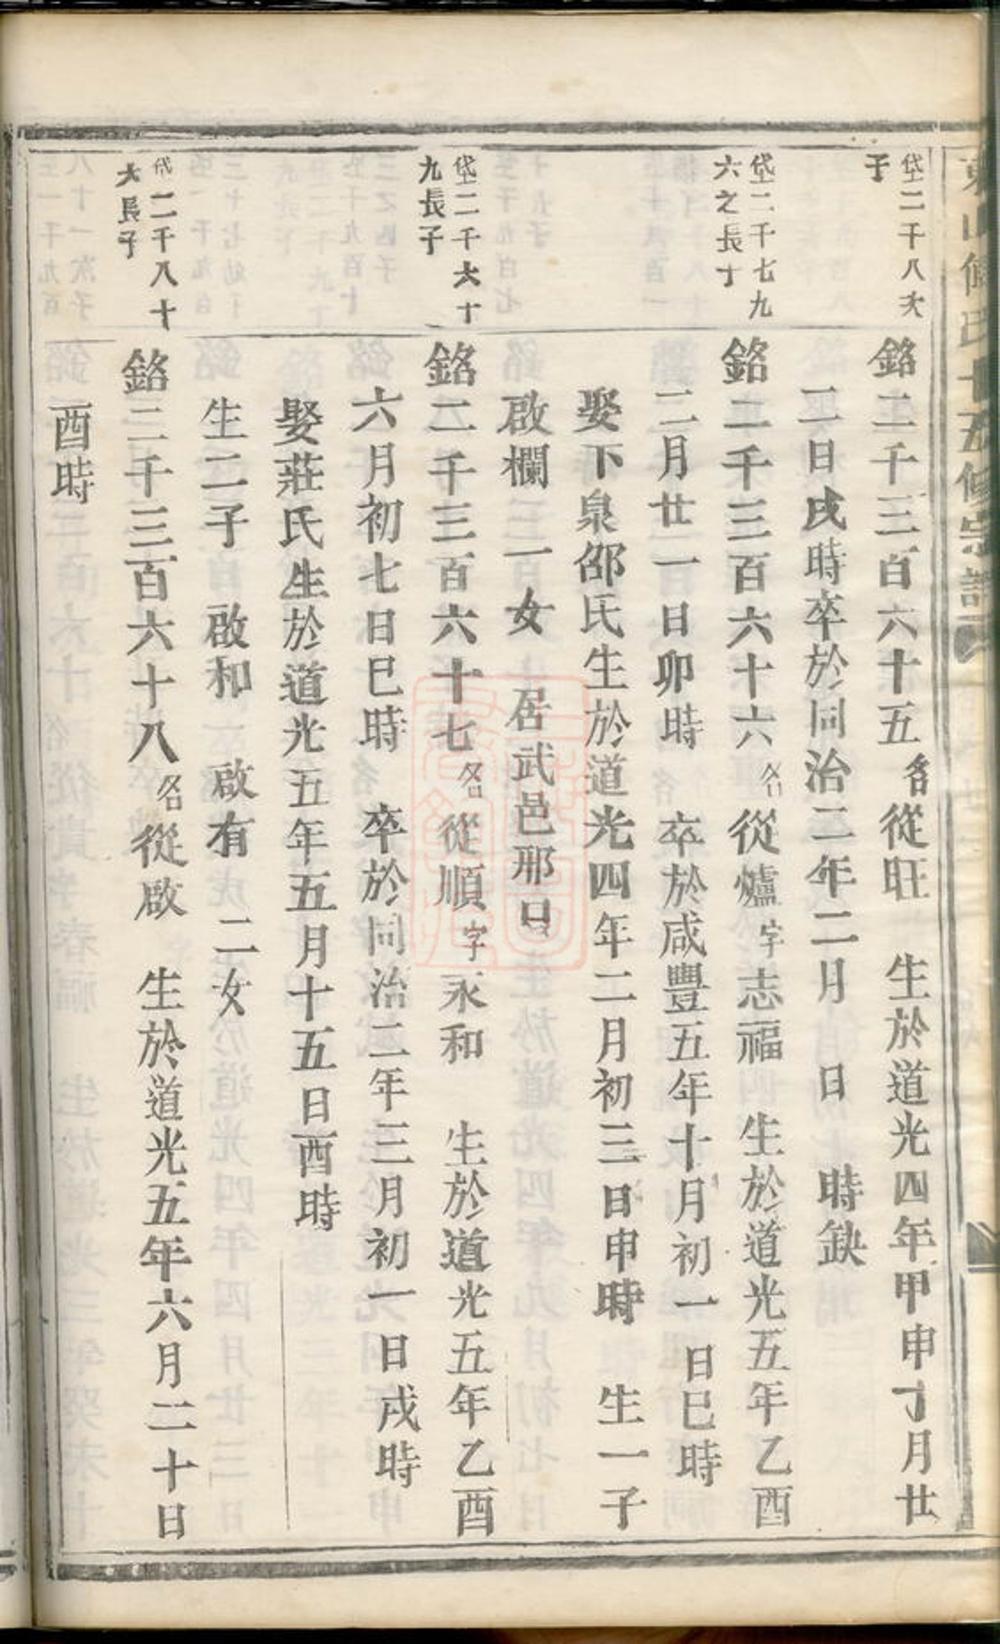 垈二千八次
子
銘二千三百六十五名從旺 生於道光四年甲申丁月廿
二日戌時卒於同治二年二月 日 時缺
垈二千七九
六之長丁
銘二千三百六十六名從爐字志福 生於道光五年乙酉
二月廿一日卯時 卒於咸豐五年十月初一日巳時
娶下泉邵氏生於道光四年二月初三日申時 生一子
啟欄 一女 居武邑那口
垈二千六十
九長子
銘二千三百六十七名從順字永和 生於道光五年乙酉
六月初七日巳時 卒於同治二年三月初一日戌時
娶莊氏生於道光五年五月十五日酉時
生二子 啟和 啟有 二女
代二千八十
六長子
銘二千三百六十八名從啟 生於道光五年六月二十日
酉時